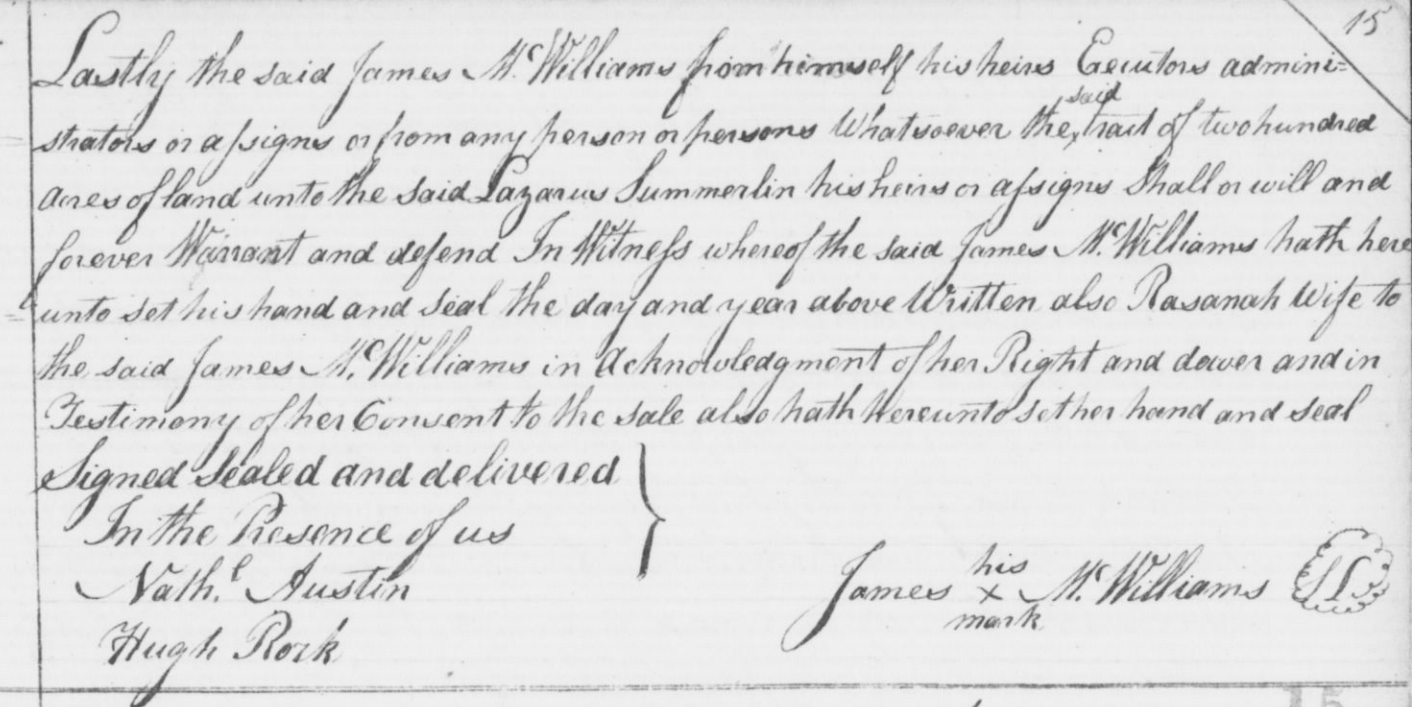 15
Lastly the said James McWilliams from himself his heirs Executors admini=
strators or assigns or from any person or persons Whatsoever the said tract of two hundred
acres of land unto the said Lazarus Summerlin his heirs or assigns Shall or will and
forever Warrant and defend In Witness whereof the said James McWilliams hath here
unto set his hand and seal the day and year above Written also Rasanah Wife to
the said James McWilliams in Acknowledgment of her Right and dower and in
Testimony of her Consent to the sale also hath hereunto set her hand and seal
Signed Sealed and delivered
In the Presence of us
Nathl. Austin
James his x mark McWilliams LS
Hugh Rork
15